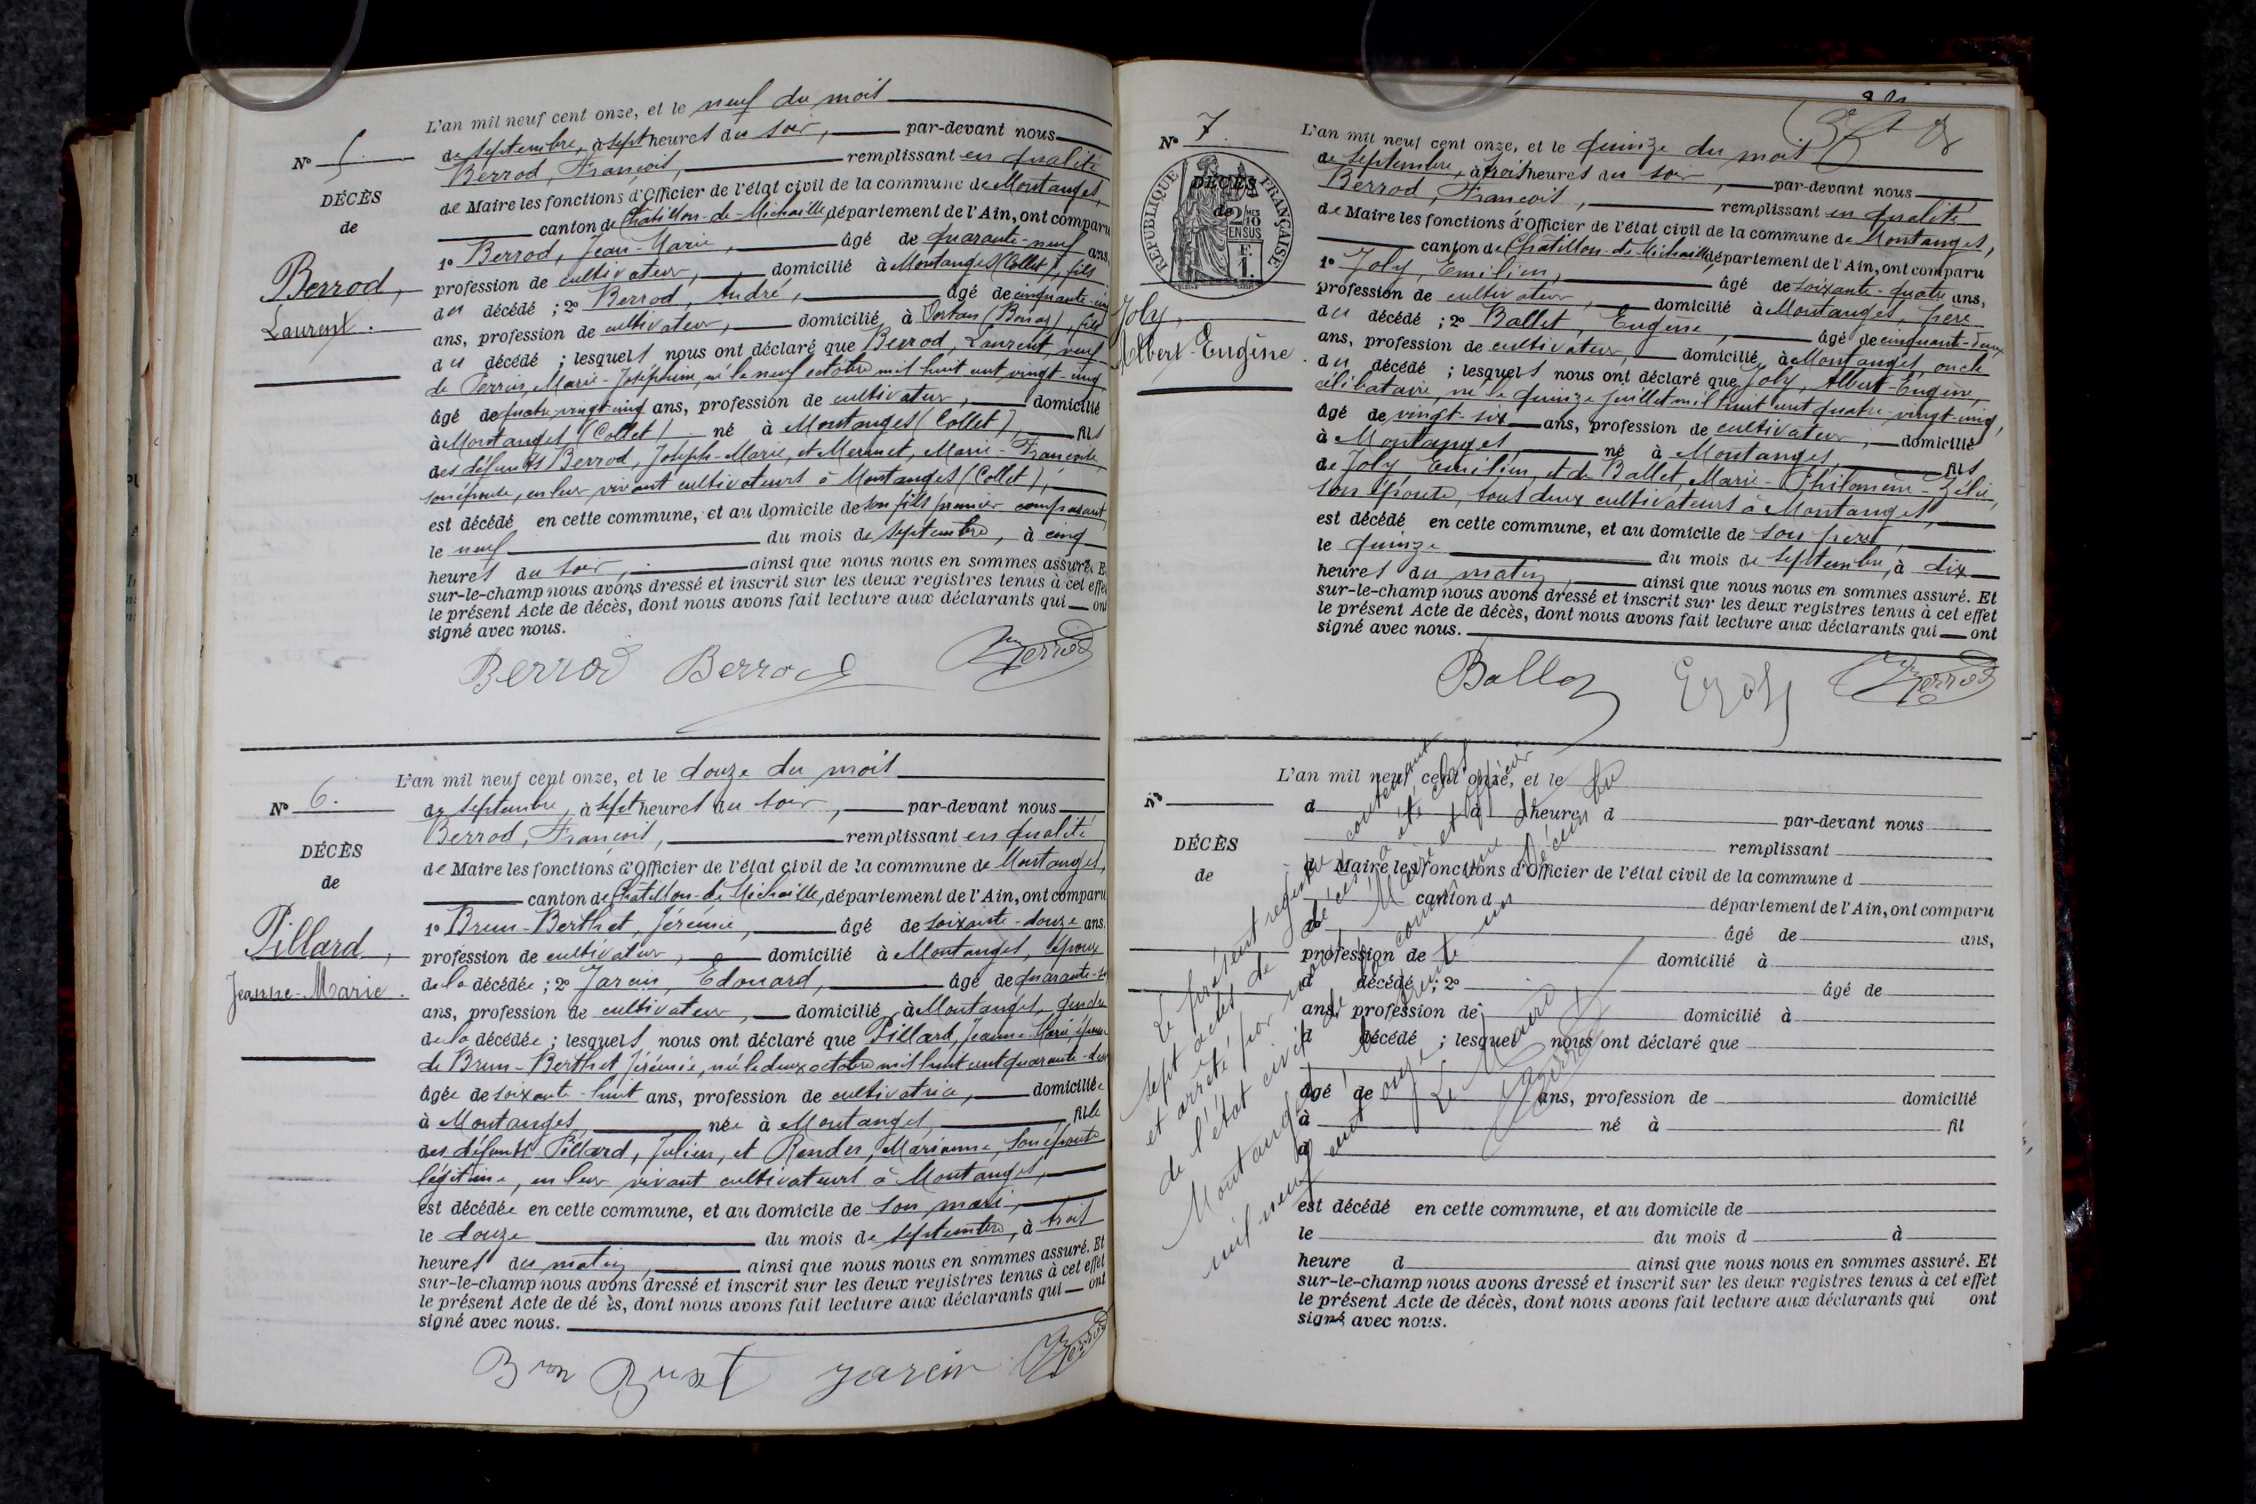 L'an mil neuf cent onze, et le neuf du mois
de septembre, à sept heures du soir, par-devant nous
Berrod, François, remplissant en qualité
de Maire les fonctions d'Officier de l'état civil de la commune de Montanges,
canton de Châtillon-de-Michaille, département de l'Ain, ont comparu
1º Berrod, Jean-Marie, âgé de quarante-neuf ans,
profession de cultivateur, domicilié à Montanges (Collet), fils
du décédé ; 2º Berrod, André, âgé de cinquante-
ans, profession de cultivateur, domicilié à fils
du décédé ; lesquels nous ont déclaré que Berrod, Laurent, veuf
de Perrin, Marie-Joséphine, né le neuf octobre mil huit cent vingt-cinq
âgé de quatre-vingt-cinq ans, profession de cultivateur, domicilié
à Montanges (Collet) né à Montanges (Collet), fils
des défunts Berrod, Joseph-Marie, et Mermet, Marie-Françoise,
son épouse, en leur vivant cultivateurs à Montanges (Collet),
est décédé en cette commune, et au domicile de son fils premier comparant
le neuf du mois de septembre, à cinq
heures du soir, ainsi que nous nous en sommes assuré. E
sur-le-champ nous avons dressé et inscrit sur les deux registres tenus à cet effet
le présent Acte de décès, dont nous avons fait lecture aux déclarants qui ont
signé avec nous.
Nº 5.
DÉCÈS
de
Berrod,
Laurent.
Berrod Berrod Berrod
L'an mil neuf cent onze, et le douze du mois
de septembre, à sept heures du soir, par-devant nous
Berrod, François, remplissant en qualité
de Maire les fonctions d'Officier de l'état civil de la commune de Montanges,
canton de Châtillon-de-Michaille, département de l'Ain, ont comparu
1º Brun-Berthet, Jérémie, âgé de soixante-douze ans.
profession de cultivateur, domicilié à Montanges, époux
de la décédée ; 2º Jarcin, Edouard, âgé de quarante-
ans, profession de cultivateur, domicilié à Montanges, gendre
de la décédée ; lesquels nous ont déclaré que Pillard, Jeanne-Marie, épouse
de Brun-Berthet Jérémie, née le deux octobre mil huit cent quarante-deux
âgée de soixante-huit ans, profession de cultivatrice, domiciliée
à Montanges, née à Montanges, fille
des défunts Pillard, Julien, et Render, Marianne, son épouse
légitime, en leur vivant cultivateurs à Montanges,
est décédée en cette commune, et au domicile de son mari,
le douze du mois de septembre, à trois
heures du matin, ainsi que nous nous en sommes assuré. Et
sur-le-champ nous avons dressé et inscrit sur les deux registres tenus à cet effet
le présent Acte de dé ès, dont nous avons fait lecture aux déclarants qui ont
signé avec nous.
Nº 6.
DÉCÈS
de
Pillard,
Jeanne-Marie.
Jarcin Berrod
L'an mil neuf cent onze, et le quinze du mois
de septembre, à trois heures du soir, par-devant nous
Berrod, François, remplissant en qualité
de Maire les fonctions d'Officier de l'état civil de la commune de Montanges,
canton de Châtillon-de-Michaille, département de l'Ain, ont comparu
1º Joly, Emilien, âgé de soixante-quatre ans,
profession de cultivateur, domicilié à Montanges, père
du décédé ; 2º Ballet, Eugène, âgé de cinquante-deux
ans, profession de cultivateur, domicilié à Montanges, oncle
du décédé ; lesquels nous ont déclaré que Joly, Albert-Eugène,
célibataire, né le quinze juillet mil huit cent quatre-vingt-cinq,
âgé de vingt-six ans, profession de cultivateur, domicilié
à Montanges, né à Montanges, fils
de Joly, Emilien, et de Ballet, Marie-Philomène-Zélie,
son épouse, tous deux cultivateurs à Montanges,
est décédé en cette commune, et au domicile de son père,
le quinze du mois de septembre, à dix
heures du matin, ainsi que nous nous en sommes assuré. Et
sur-le-champ nous avons dressé et inscrit sur les deux registres tenus à cet effet
le présent Acte de décès, dont nous avons fait lecture aux déclarants qui ont
signé avec nous.
Nº 7.
RÉPUBLIQUE FRANÇAISE
DÉCÈS
de
2/10 EN SUS
F. 1.
Joly,
Albert-Eugène.
Berrod
L'an mil neuf cent onze, et le
d à heure d par-devant nous
remplissant
d Maire les fonctions d'Officier de l'état civil de la commune d
canton d département de l'Ain, ont comparu
âgé de ans,
profession de domicilié à
d décédé ; 2º âgé de
ans, profession de domicilié à
d décédé ; lesquel nous ont déclaré que
âgé de ans, profession de domicilié
à né à fil
d
est décédé en cette commune, et au domicile de
le du mois d à
heure d ainsi que nous nous en sommes assuré. Et
sur-le-champ nous avons dressé et inscrit sur les deux registres tenus à cet effet
le présent Acte de décès, dont nous avons fait lecture aux déclarants qui ont
signé avec nous.
Nº
DÉCÈS
de
Le présent registre contenant
sept actes de décès a été clos
et arrêté par nous Maire et officier
de l'état civil de la commune de
Montanges, le trente un décembre
mil neuf cent onze.
Le Maire
Berrod